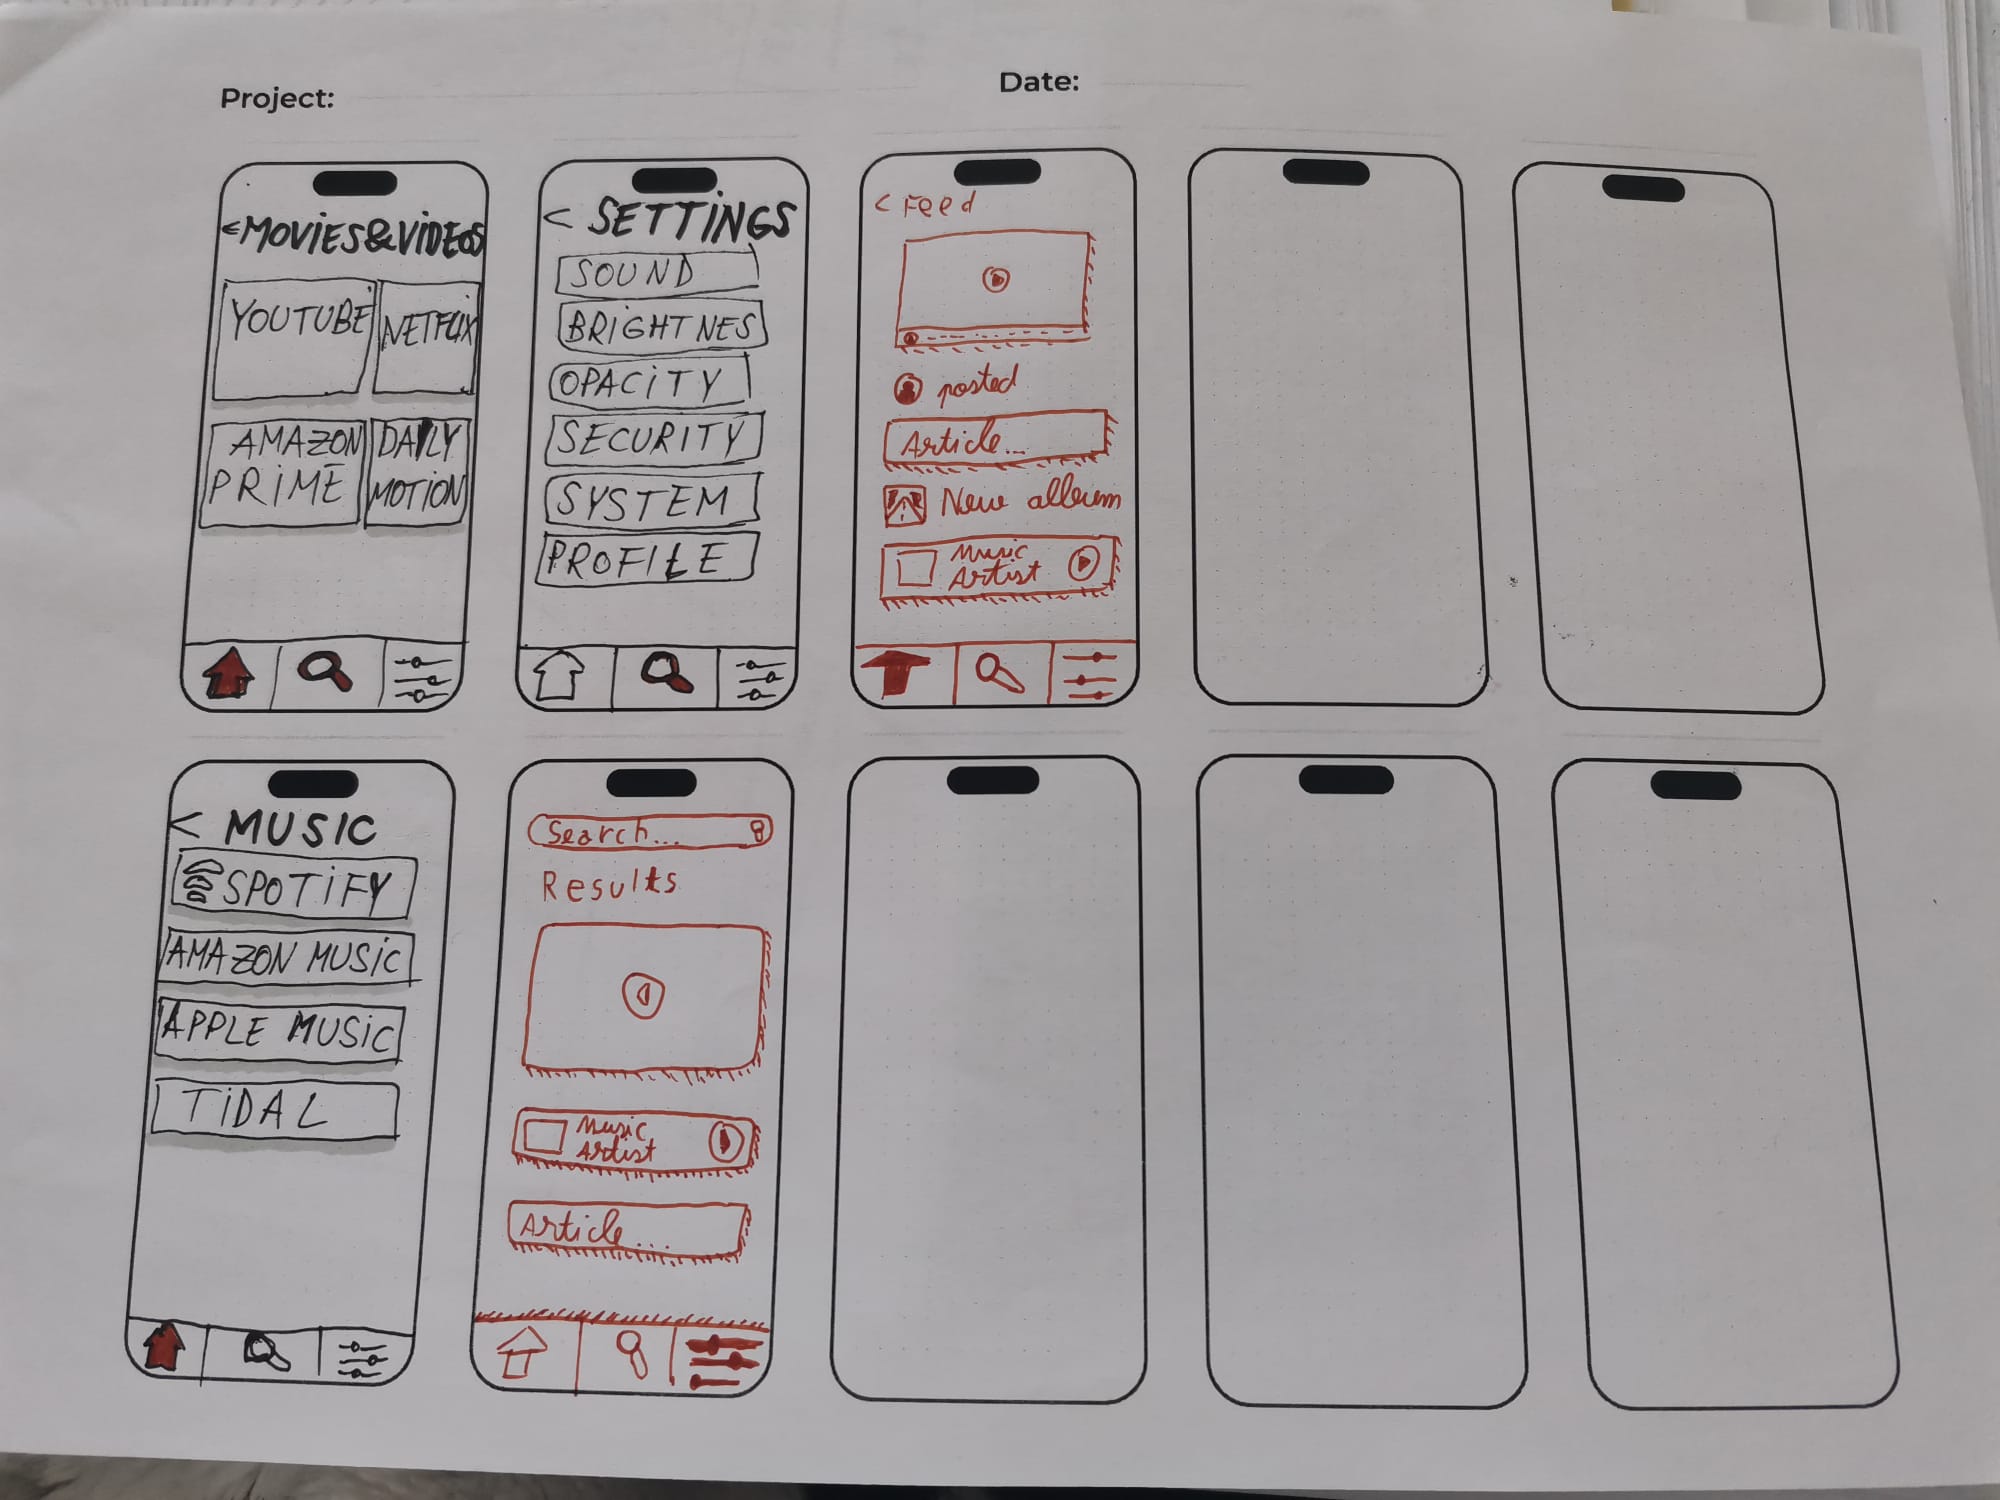 Project:
Date:
< MOVIES&VIDEOS
YOUTUBE
NETFLIX
AMAZON
PRIME
DAILY
MOTION
< SETTINGS
SOUND
BRIGHTNES
OPACITY
SECURITY
SYSTEM
PROFILE
< Feed
posted
Article...
New album
Music
Artist
< MUSIC
SPOTIFY
AMAZON MUSIC
APPLE MUSIC
TIDAL
Search...
Results
Music
Artist
Article...